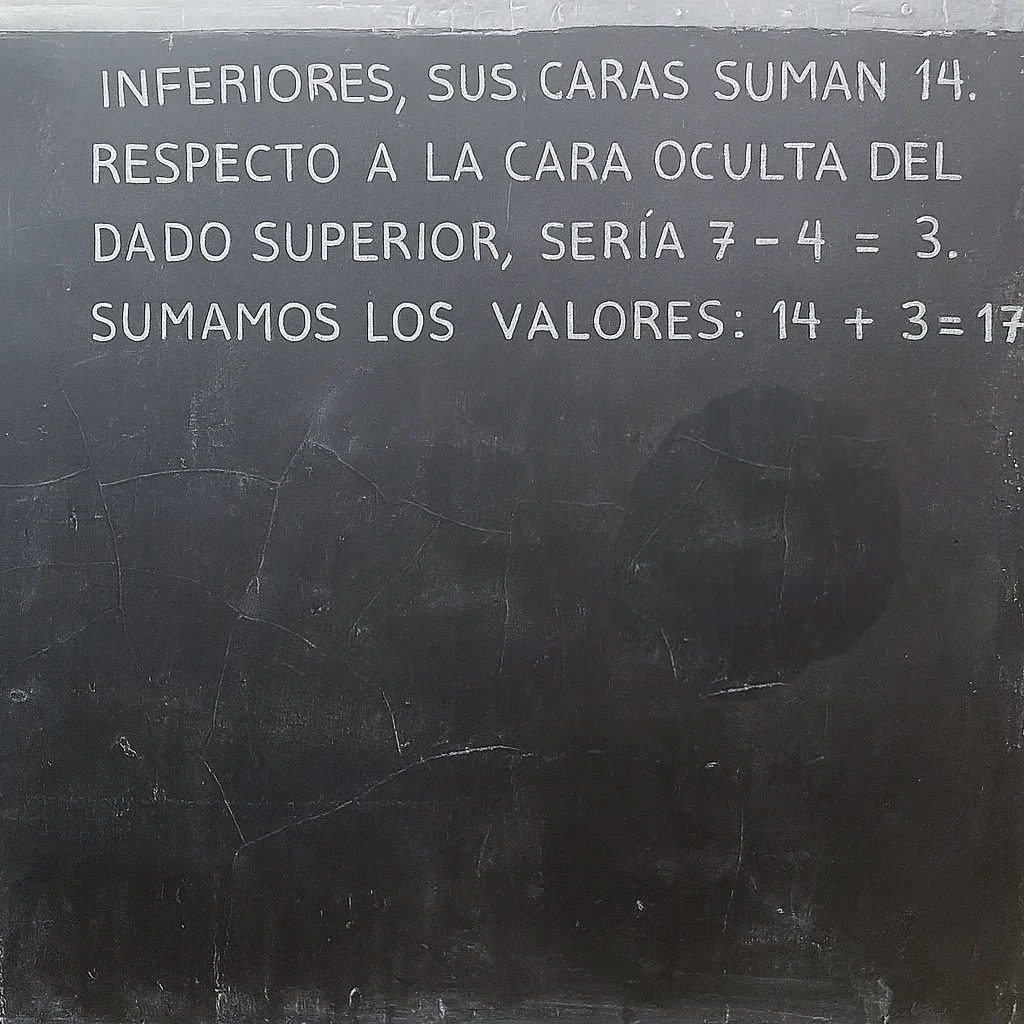 INFERIORES, SUS CARAS SUMAN 14.
RESPECTO A LA CARA OCULTA DEL
DADO SUPERIOR, SERÍA 7 - 4 = 3.
SUMAMOS LOS VALORES: 14 + 3 = 17